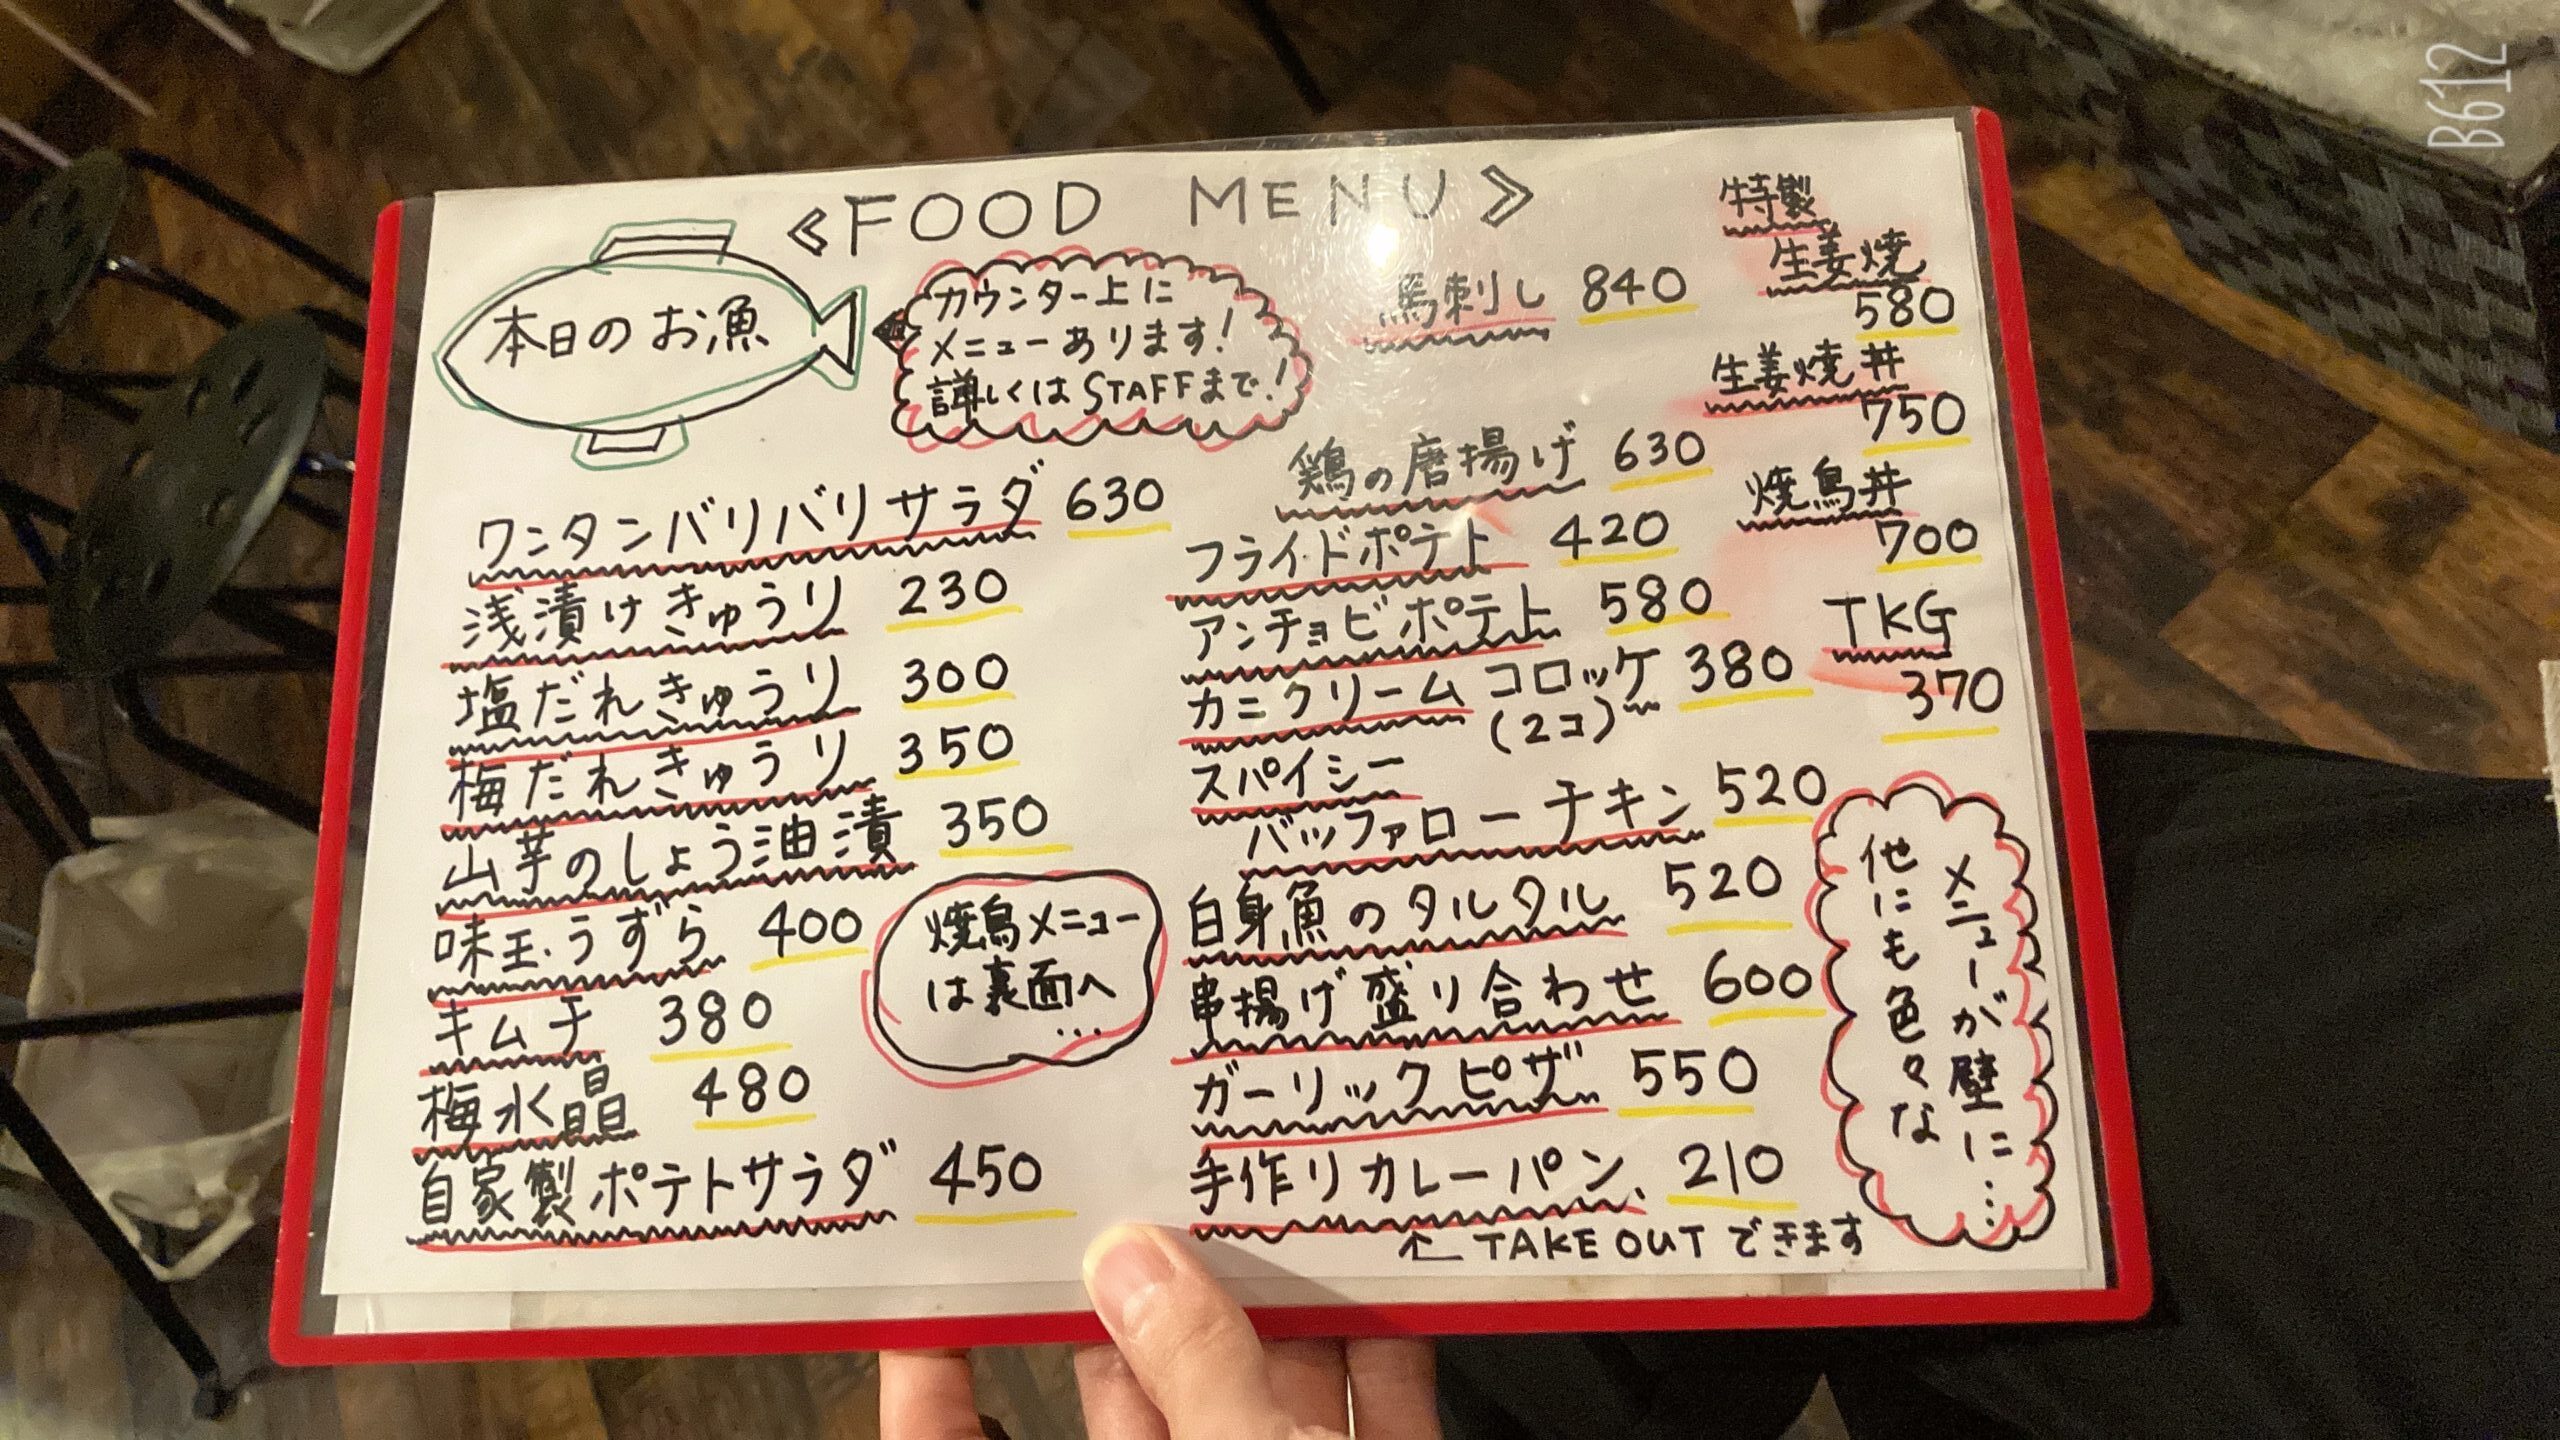 B612
≪FOOD MENU≫
本日のお魚
カウンター上に
メニューあります!
詳しくはSTAFFまで!
ワンタンバリバリサラダ 630
浅漬けきゅうり 230
塩だれきゅうり 300
梅だれきゅうり 350
山芋のしょう油漬 350
味玉うずら 400
キムチ 380
梅水晶 480
自家製ポテトサラダ 450
焼鳥メニュー
は裏面へ
...
馬刺し 840
鶏の唐揚げ 630
フライドポテト 420
アンチョビポテト 580
カニクリームコロッケ 380
(2コ)
スパイシー
バッファローチキン 520
白身魚のタルタル 520
串揚げ盛り合わせ 600
ガーリックピザ 550
手作りカレーパン 210
↑ TAKE OUTできます
特製
生姜焼
580
生姜焼丼
750
焼鳥丼
700
TKG
370
他にも色々な
メニューが壁に...